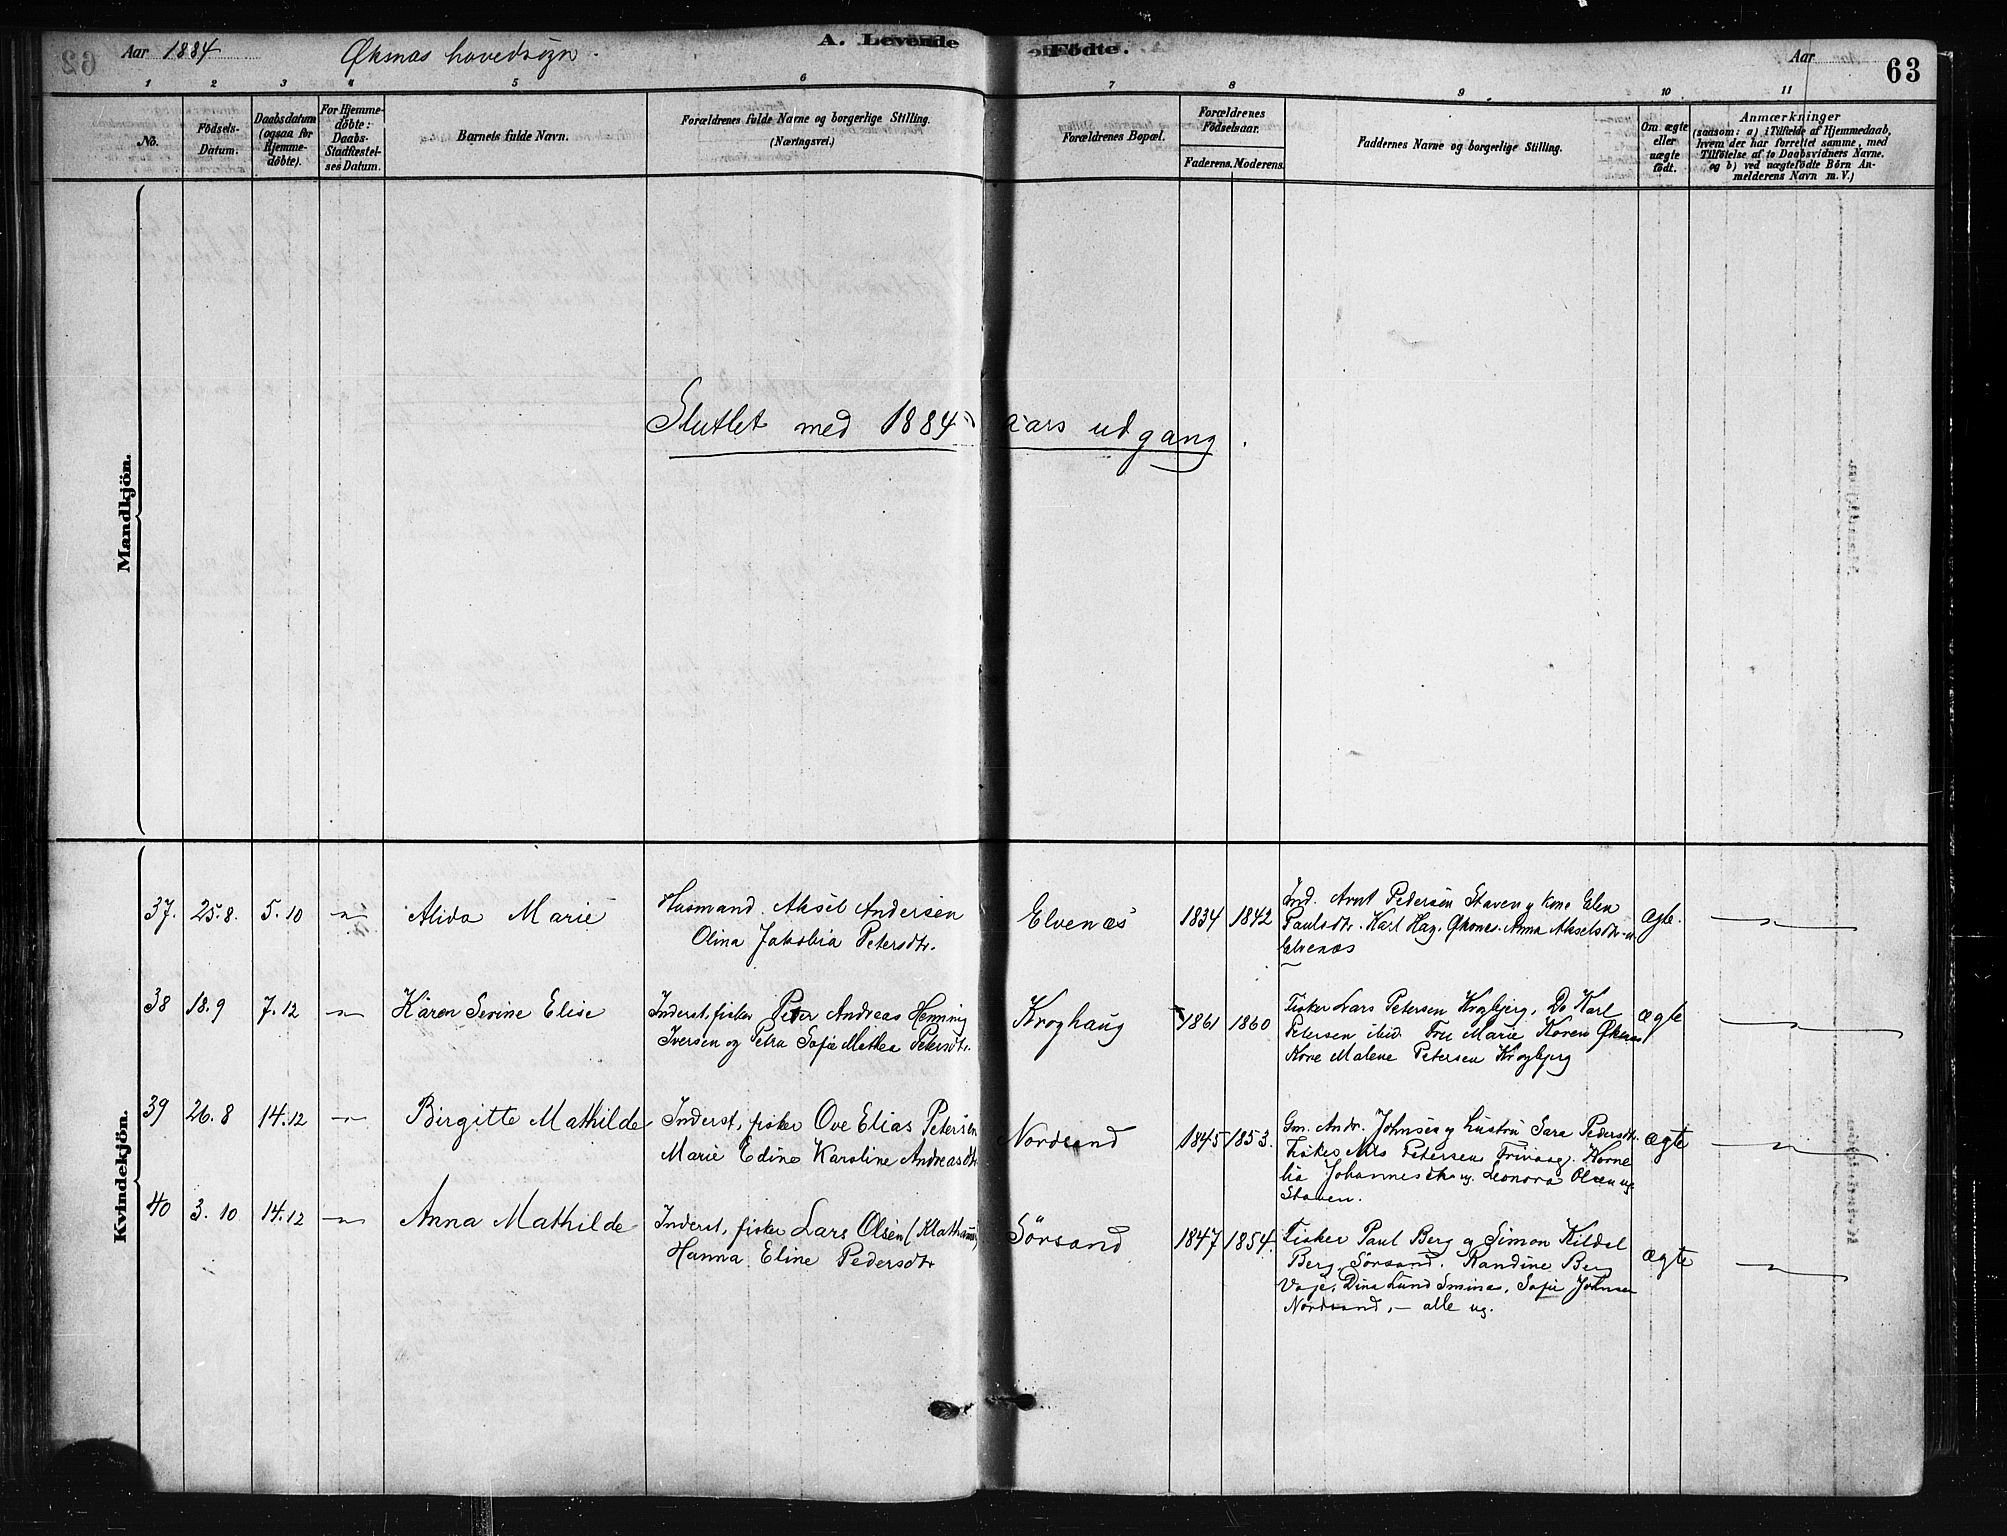 Aar 1884
Øksnas hovedsogn.
A. Levende Fødte.
Aar
63
1 2 3 4 5 6 7 8 9 10 11
No.
Födsels-
Datum.
Daabsdatum
(ogsaa for
Hjemme-
döbte).
For Hjemme-
döbte:
Daabs-
Stadfæstel-
ses Datum.
Barnets fulde Navn.
Forældrenes fulde Navne og borgerlige Stilling.
(Næringsvei.)
Forældrenes Bopæl.
Forældrenes
Födselsaar.
Faderens. Moderens.
Faddernes Navne og borgerlige Stilling.
Om ægte
eller
uægte
födt.
Anmærkninger
(saasom: a) i Tilfælde af Hjemmedaab,
hvem der har forrettet samme, med
Tilföielse af to Daabsvidners Navne,
og b) ved uægtefödte Börn An-
melderens Navn m. V.)
Mandkjön.
Sluttet med 1884 aars udgang.
Kvindekjön.
37. 25.8. 5.10 Alida Marie
Husmand. Aksel Andersen
Olina Jakobia Petersdtr.
Elvenæs 1834 1842
Ind. Arnt Pedersen Staven og kone Elen
Paulsdtr. Karl Hag. Øksnes. Anna Akselsdtr
Elvenæs
ægte.
38 18.9 7.12 Karen Sevine Elise
Inderst, fisker Peter Andreas Henning
Iversen og Petra Sofie Mathea Petersdtr.
Kroghaug 1861 1860
Fisker Lars Petersen Krogbjerg, Do Karl
Petersen ibid Fru Marie Koren Øksnes
Kone Malene Petersen Krogbjerg
ægte
39 26.8 14.12 Birgitte Mathilde
Inderst, fisker Ove Elias Petersen
Marie Edine Karoline Andreasdtr
Nordsand 1845 1853.
Gm. Andr. Johnsen og hustru Sara Pedersdtr.
Fisker Nils Petersen Korne
lia Johannesdtr ug. Leonora Olsen ug.
Staven.
ægte
40 3.10 14.12 Anna Mathilde
Inderst, fisker Lars Olsen
Hanna Eline Pedersdtr
Sørsand 1847 1854.
Fisker Paul Berg og Simon Kildal
Berg, Sørsand. Randine Berg
Vaje, Dina Lund Smines, Sofie Johnsen
Nordsand, – alle ug.
ægte